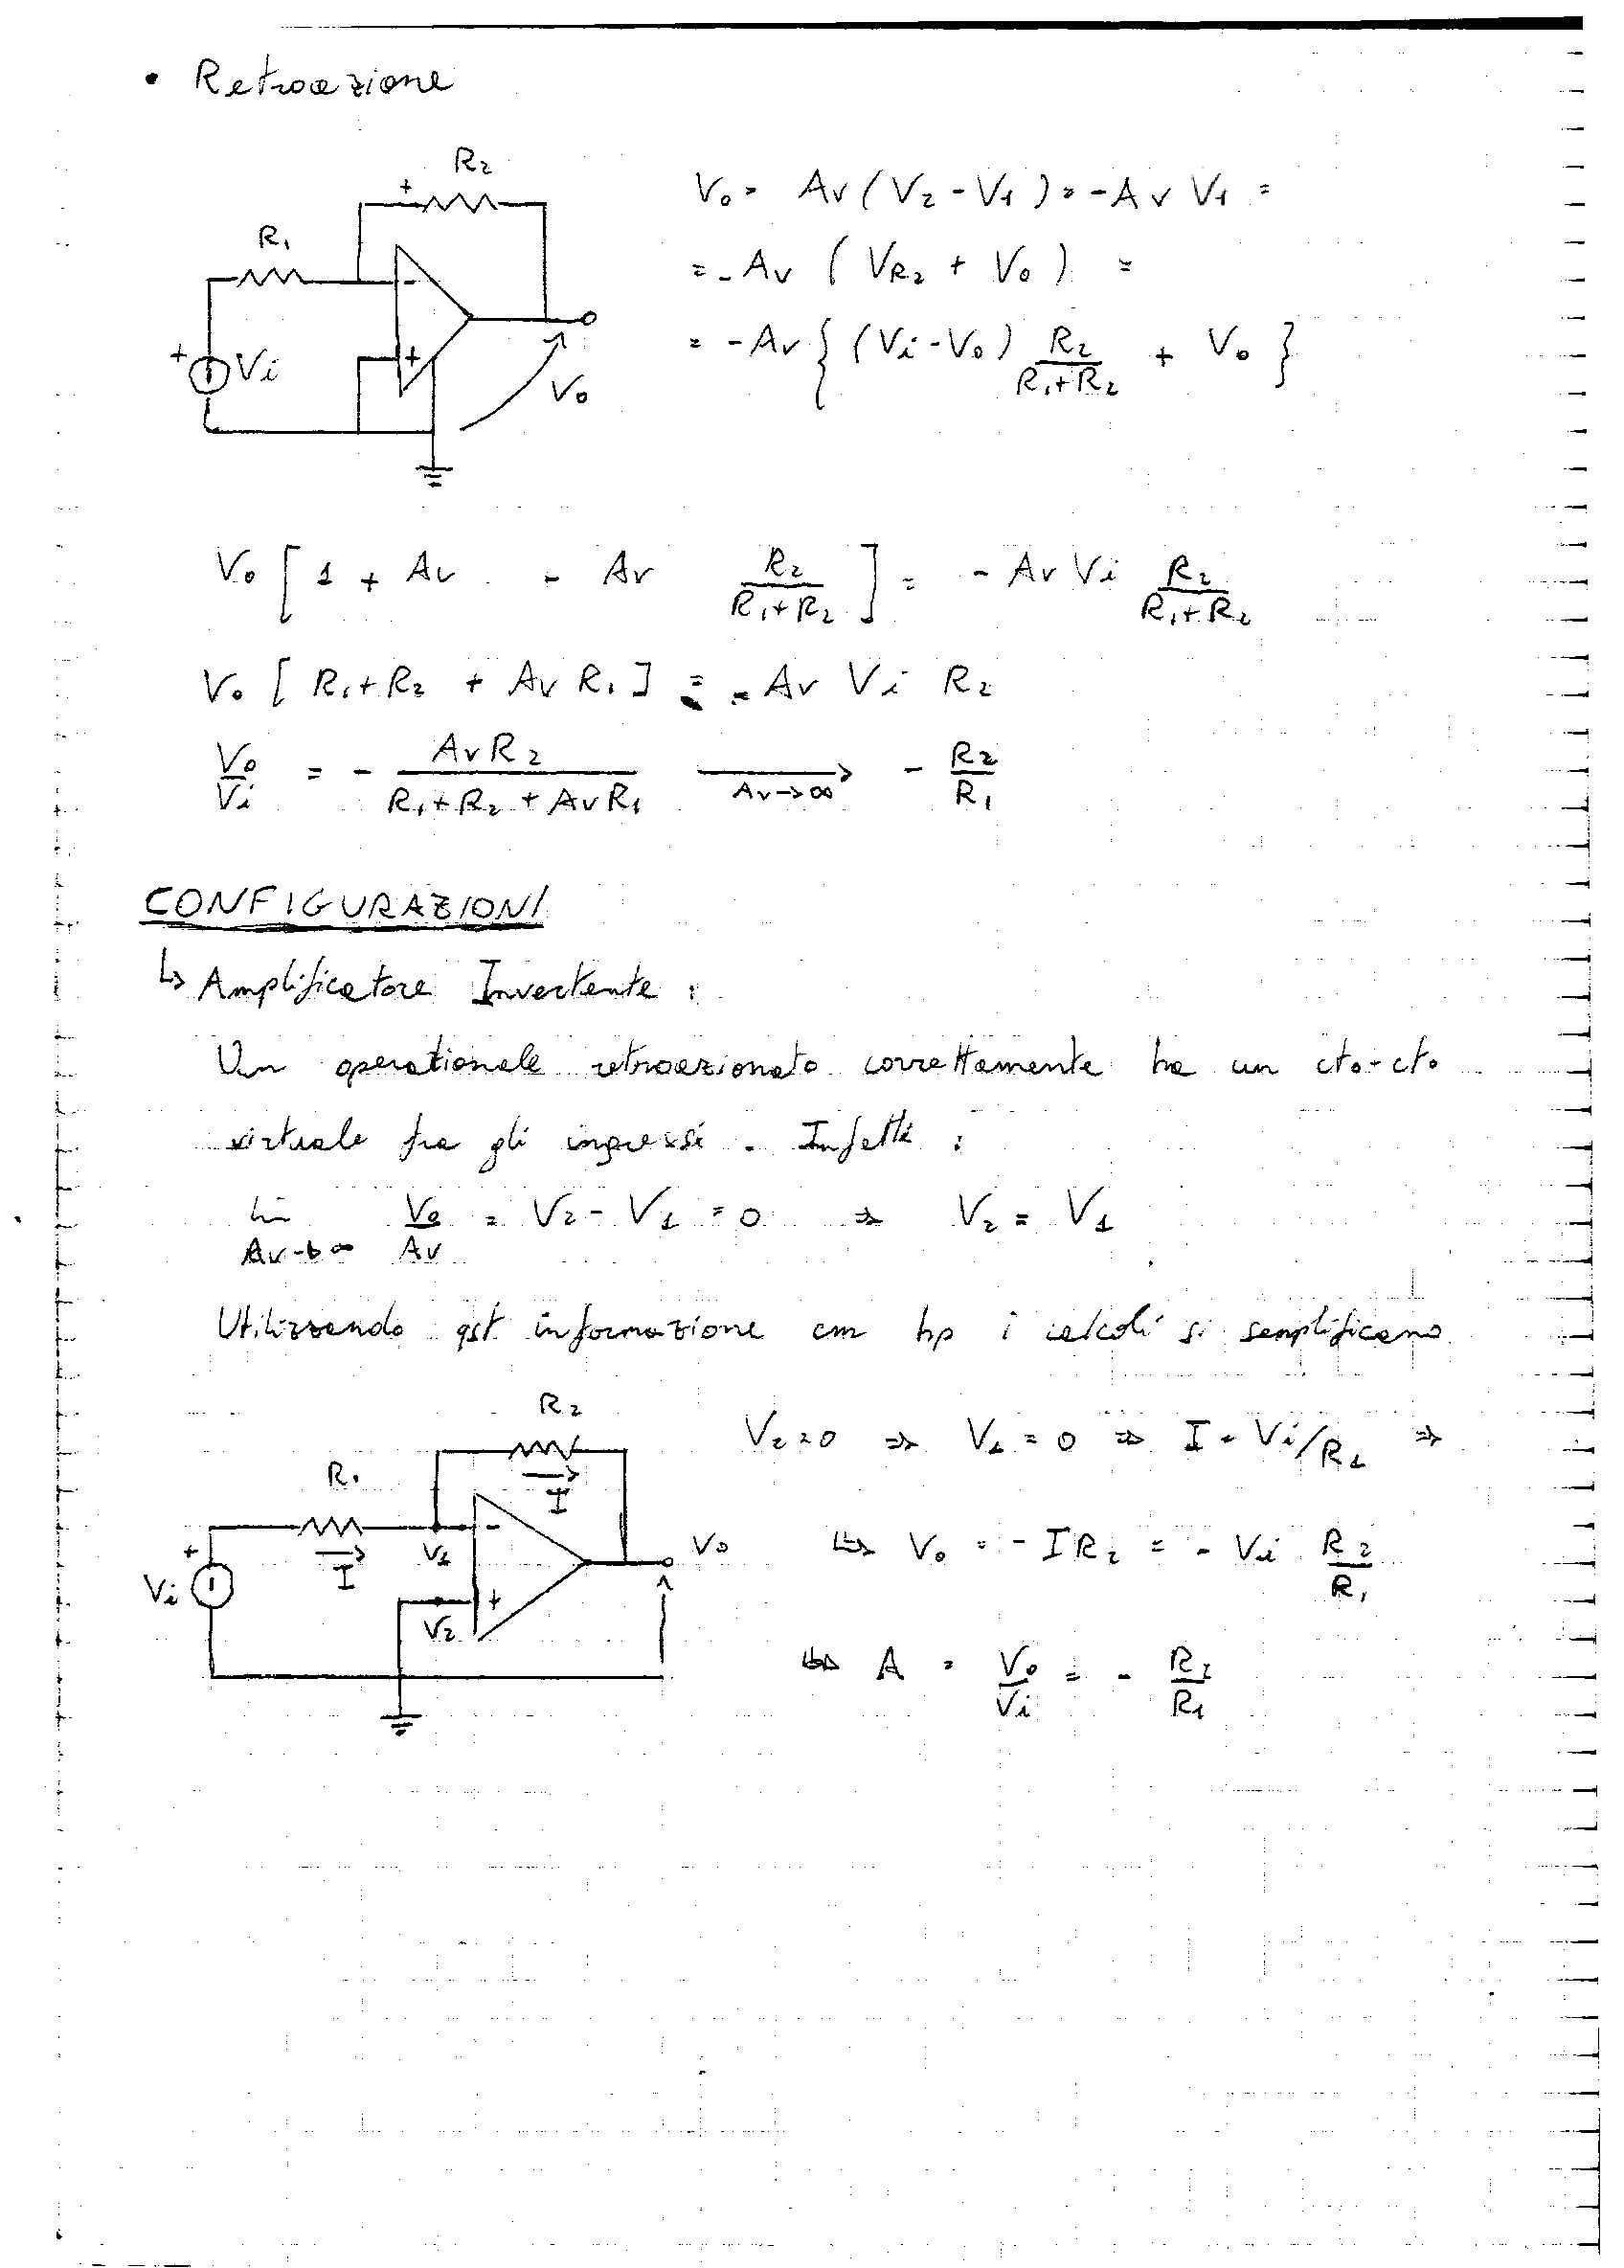 • Retroazione
R2
+
R1
-
+
+
Vi
Vo
Vo = Av (V2 - V1) = -Av V1 =
= -Av (VR2 + Vo) =
= -Av { (Vi - Vo) R2/(R1+R2) + Vo }
Vo [ 1 + Av - Av R2/(R1+R2) ] = - Av Vi R2/(R1+R2)
Vo [ R1+R2 + Av R1 ] = - Av Vi R2
Vo/Vi = - Av R2/(R1+R2+Av R1) ⟶ Av→∞ - R2/R1
CONFIGURAZIONI
↳ Amplificatore Invertente :
Un operazionale retroazionato correttamente ha un cto-cto
virtuale fra gli ingressi. Infatti :
lim Av→∞ Vo/Av = V2 - V1 = 0 ⇒ V2 = V1
Utilizzando qst informazione cm hp i calcoli si semplificano
R2
I
R1
I
V1
-
+
V2
+
Vi
Vo
V2 = 0 ⇒ V1 = 0 ⇒ I = Vi/R1 ⇒
↳ Vo = - I R2 = - Vi R2/R1
↳ A = Vo/Vi = - R2/R1